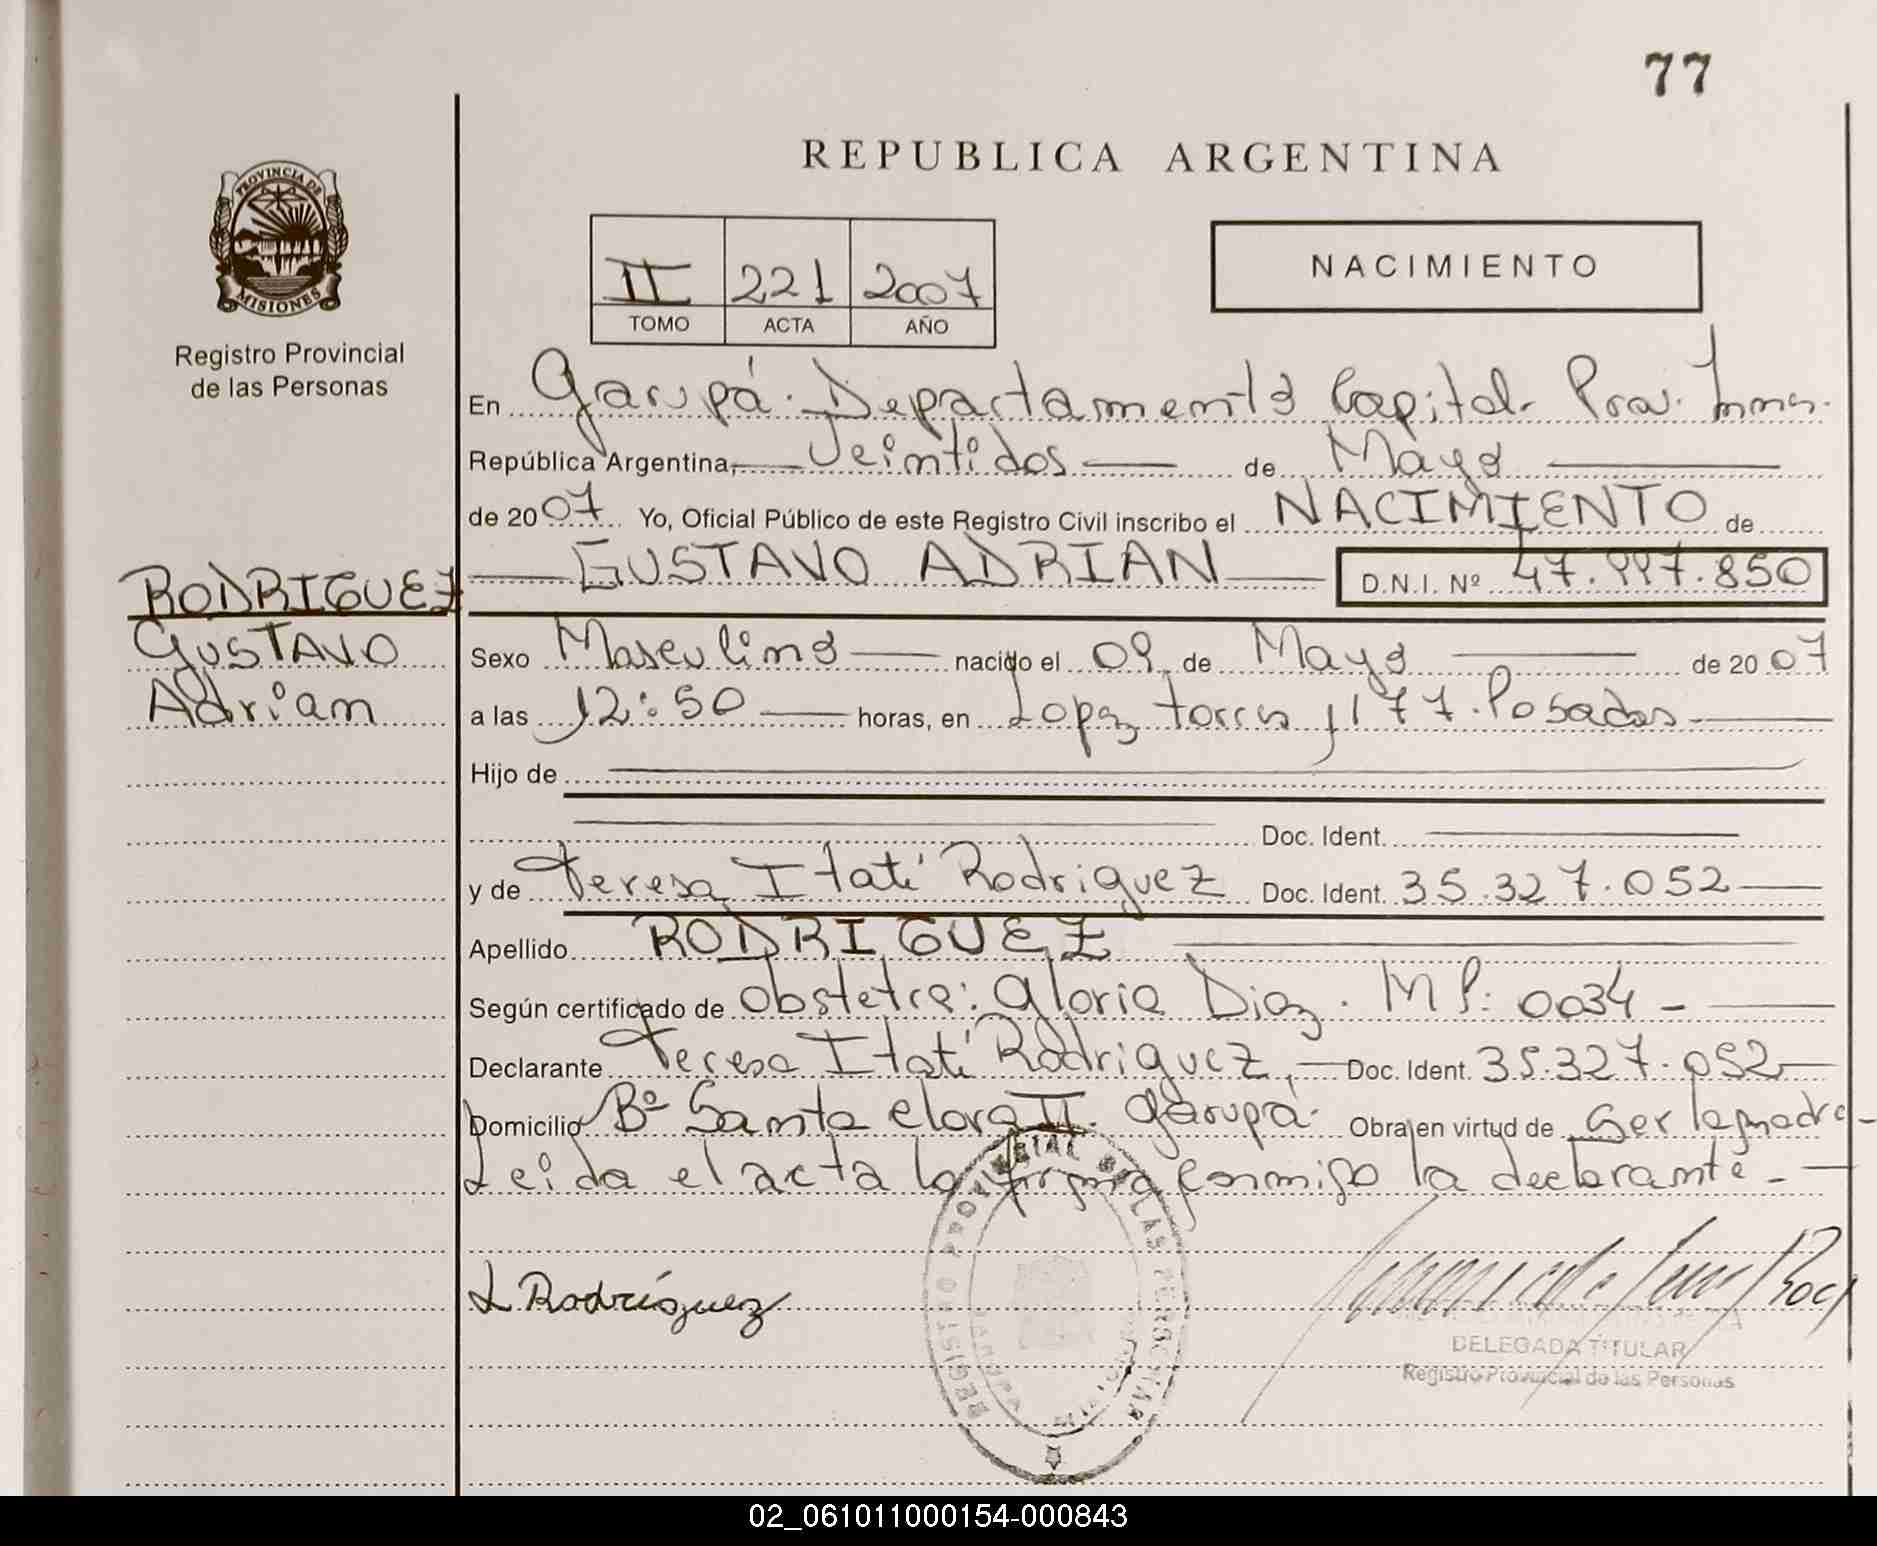 77
REPUBLICA ARGENTINA
PROVINCIA DE
MISIONES
Registro Provincial
de las Personas
II 221 2007
TOMO ACTA AÑO
NACIMIENTO
En Garupá. Departamento Capital. Prov. Mnes.
República Argentina, Veintidos de Mayo
de 2007 Yo, Oficial Público de este Registro Civil inscribo el NACIMIENTO de
GUSTAVO ADRIAN D.N.I. Nº 47.997.850
RODRIGUEZ
Gustavo
Adrian
Sexo Masculino nacido el 09 de Mayo de 2007
a las 12:50 horas, en Lopez Torres 1177. Posadas
Hijo de
Doc. Ident.
y de Teresa Itatí Rodriguez Doc. Ident. 35.327.052
Apellido RODRIGUEZ
Según certificado de Obstetra: Gloria Diaz. MP: 0034 -
Declarante Teresa Itatí Rodriguez, Doc. Ident. 35.327.052
Domicilio Bº Santa Clara II. Garupá. Obra en virtud de Ser la madre -
Leida el acta la firma conmigo la declarante -
Rodríguez
REGISTRO PROVINCIAL DE LAS PERSONAS
GARUPA
DELEGADA TITULAR
Registro Provincial de las Personas
02_061011000154-000843